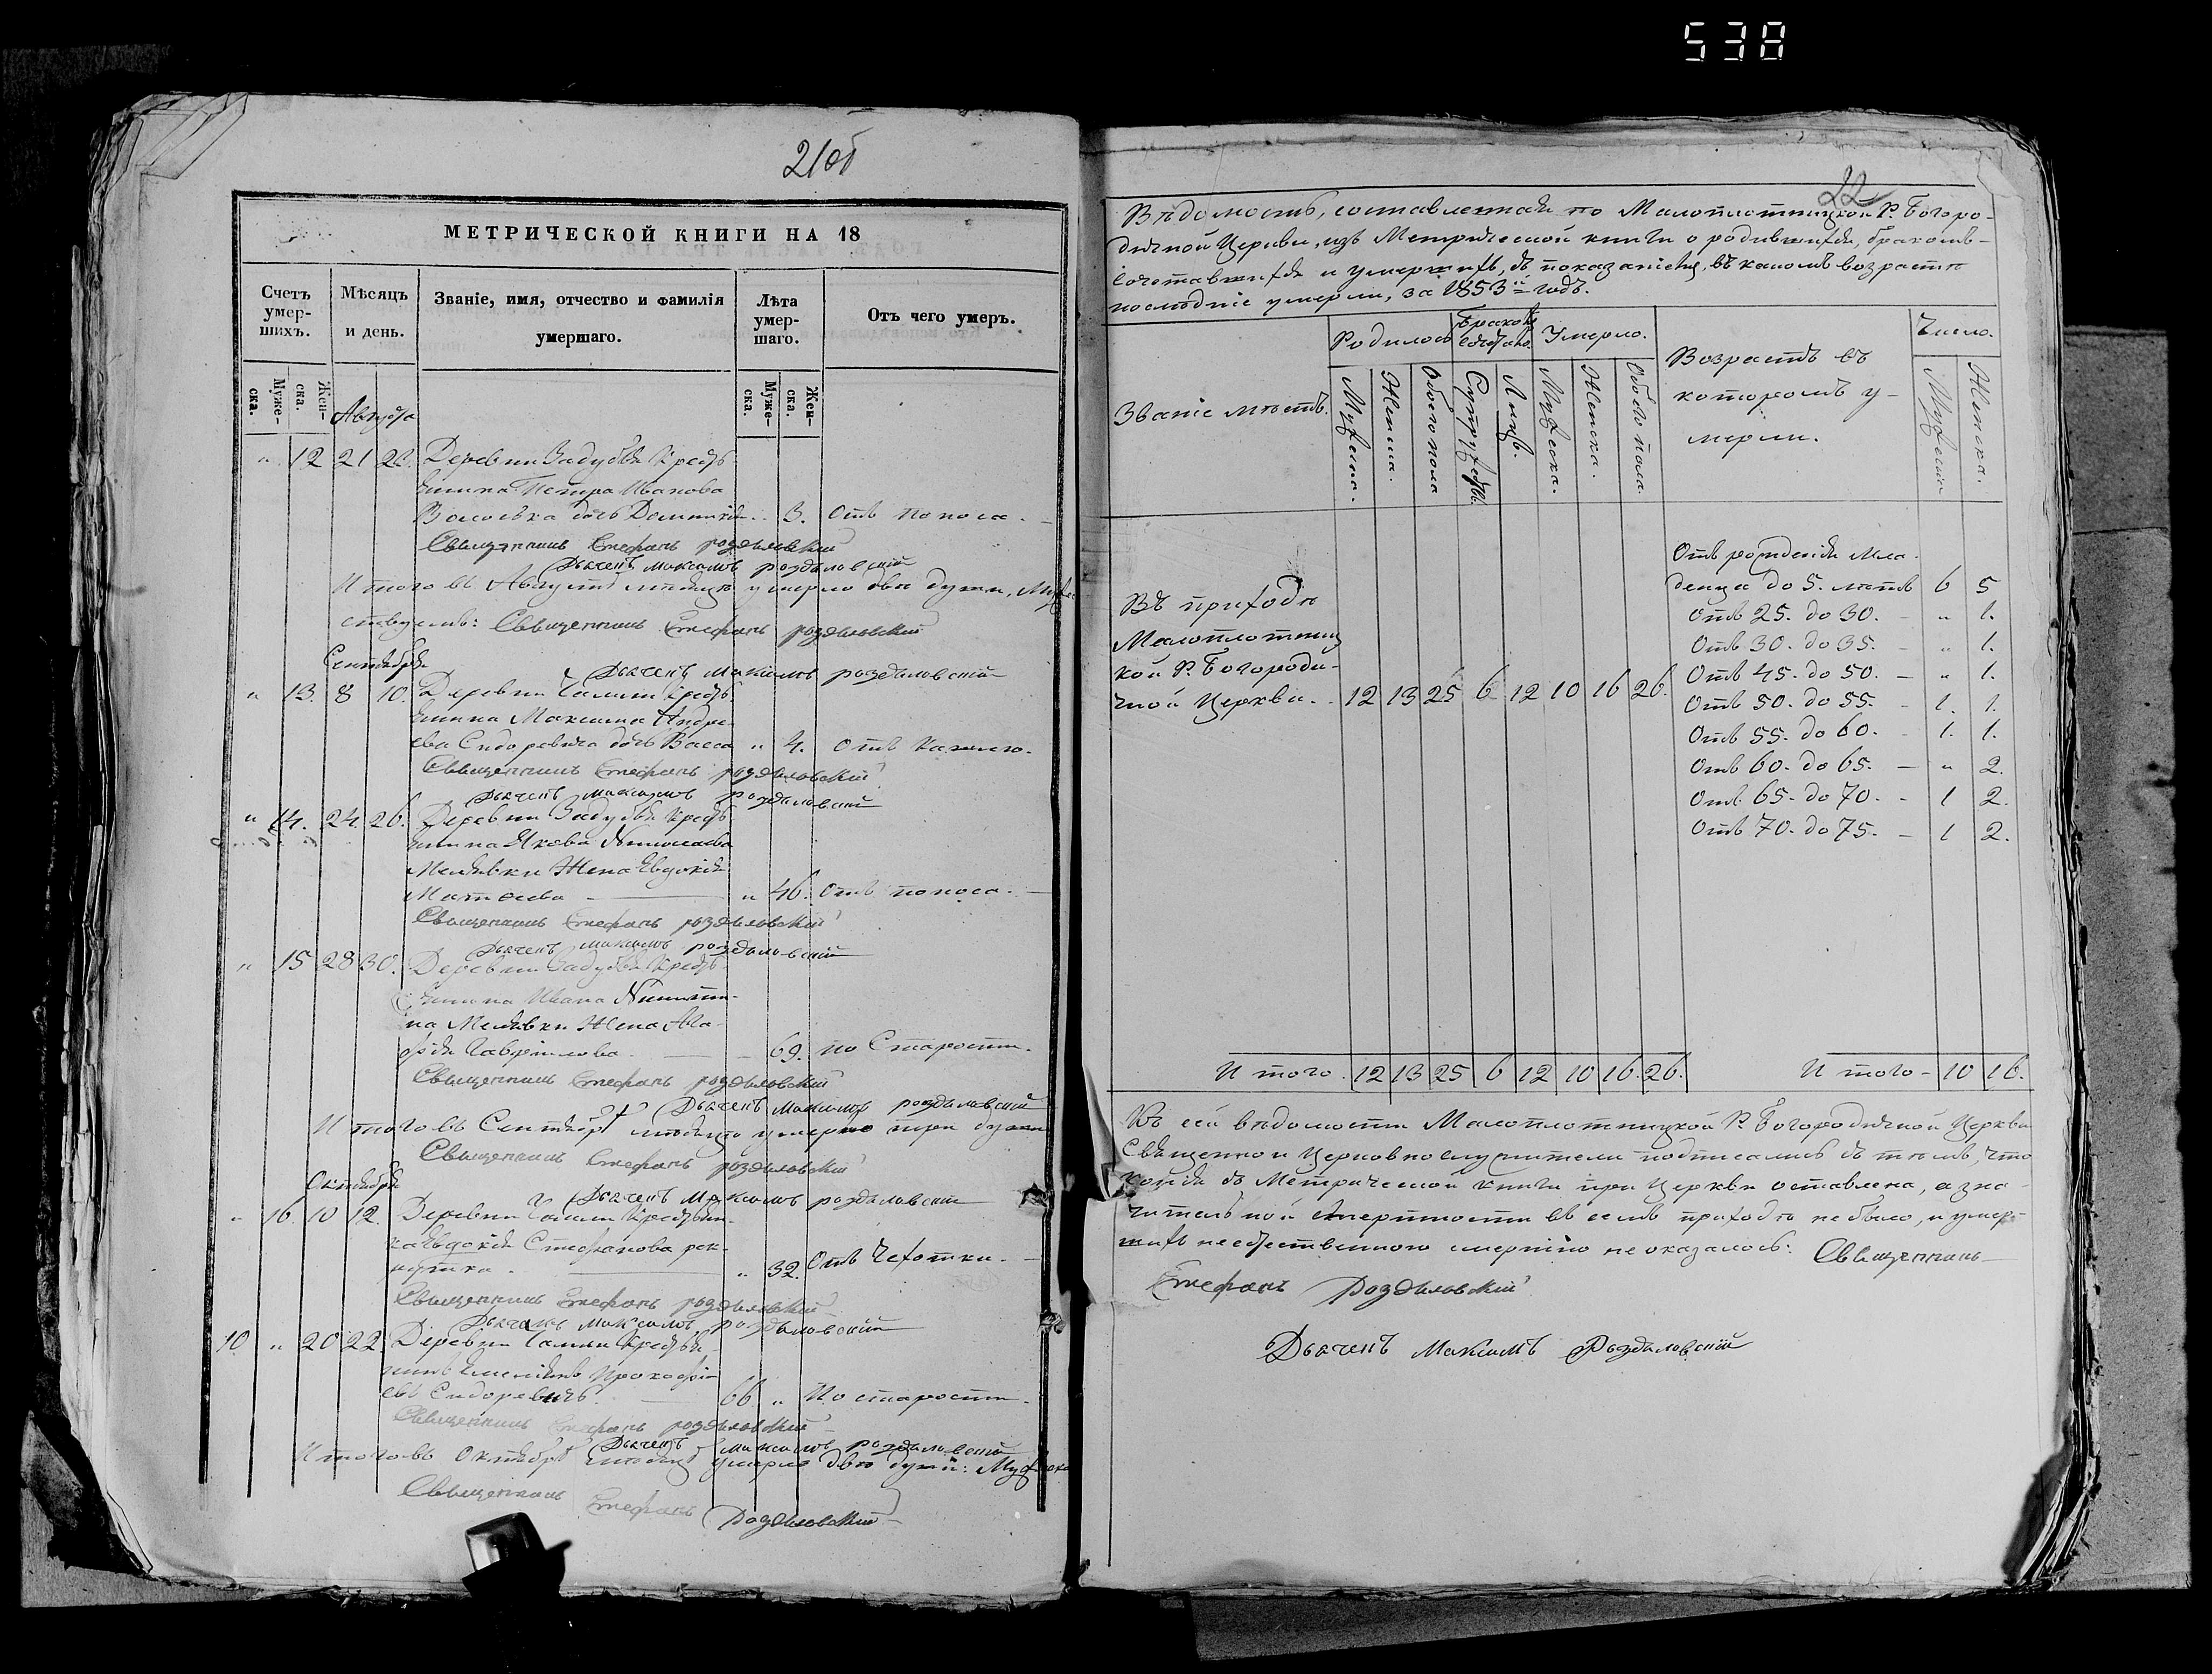 538
21об
МЕТРИЧЕСКОЙ КНИГИ НА 18
Счетъ умер-шихъ.
Мѣсяцъ и день.
Званіе, имя, отчество и фамилія умершаго.
Лѣта умер-шаго.
Отъ чего умеръ.
Муже-ска.
Жен-ска.
Муже-ска.
Жен-ска.
Августа
" 12 21 22. Деревни Задубья Кресть-
янина Петра Иванова
дочь Домникія 3. Отъ поноса.
Священникъ Стефанъ Роздяловскій
Дьячекъ Максимъ Роздяловскій
Итого въ Августѣ мѣсяцѣ умерло двѣ души,
Священникъ Стефанъ Роздяловскій
Сентября
Дьячекъ Максимъ Роздяловскій
" 13. 8 10. Деревни Кресть-
янина Максима Андре-
ева Сидоревича дочь Васса " 4. Отъ кашлю.
Священникъ Стефанъ Роздяловскій
Дьячекъ Максимъ Роздяловскій
" 14. 24. 26. Деревни Задубья Кресть-
янина Якова Николаева
Жена Евдокія
Матѳеева " 46. Отъ поноса.
Священникъ Стефанъ Роздяловскій
Дьячекъ Максимъ Роздяловскій
" 15 28 30. Деревни Задубья Кресть-
янина Ивана Никити-
на Жена Ага-
фія Гаврилова 69. по Старости.
Священникъ Стефанъ Роздяловскій
Дьячекъ Максимъ Роздяловскій
Итого въ Сентябрѣ мѣсяцѣ умерло три души
Священникъ Стефанъ Роздяловскій
Октября
Дьячекъ Максимъ Роздяловскій
" 16. 10 12. Деревни Крестьян-
ка Евдокія Стефанова рек-
рутка. " 32. Отъ Чехотки.
Священникъ Стефанъ Роздяловскій
Дьячекъ Максимъ Роздяловскій
10 " 20 22 Деревни Крестья-
нинъ Прокофі-
евъ Сидоревичъ. 66. " По старости.
Священникъ Стефанъ Роздяловскій
Дьячекъ Максимъ Роздяловскій
Итого въ Октябрѣ мѣсяцѣ умерло двѣ души:
Священникъ Стефанъ Роздяловскій
22
Вѣдомость, составленная по Малоплотницкой Р. Богоро-
дичной Церкви, изъ Метрической книги о родившихся, бракомъ-
сочетавшихся и умершихъ, съ показаніемъ, въ какомъ возрастѣ
послѣдніе умерли, за 1853й годъ.
Званіе мѣстъ.
Родилось
Мужеска.
Женска.
Обоего пола
Бракомъ сочетано.
Супружествъ.
Лицъ.
Умерло.
Мужеска.
Женска.
Обоего пола.
Возрастъ въ
которомъ у-
мерли.
Число.
Мужеска
Женска.
Въ приходѣ
Малоплотниц
кой Р. Богороди-
чной Церкви. 12 13 25 6 12 10 16 26.
Отъ рожденія мла-
денца до 5. лѣтъ 6 5
Отъ 25. до 30. " 1.
Отъ 30. до 35. " 1.
Отъ 45. до 50. " 1.
Отъ 50. до 55. 1. 1.
Отъ 55. до 60. 1. 1.
Отъ 60. до 65. " 2.
Отъ 65. до 70. 1 2.
Отъ 70. до 75. 1 2.
Итого. 12 13 25 6 12 10 16. 26.
Итого 10 16.
Къ сей вѣдомости Малоплотницкой Р. Богородичной Церкви
Священно и Церковнослужители подписались въ томъ, что
копія съ Метрической книги при Церкви оставлена, а зна-
чительной смертности въ семъ приходѣ не было, и умер-
шихъ неестественною смертію не оказалось: Священникъ
Стефанъ Роздяловскій
Дьячекъ Максимъ Роздяловскій